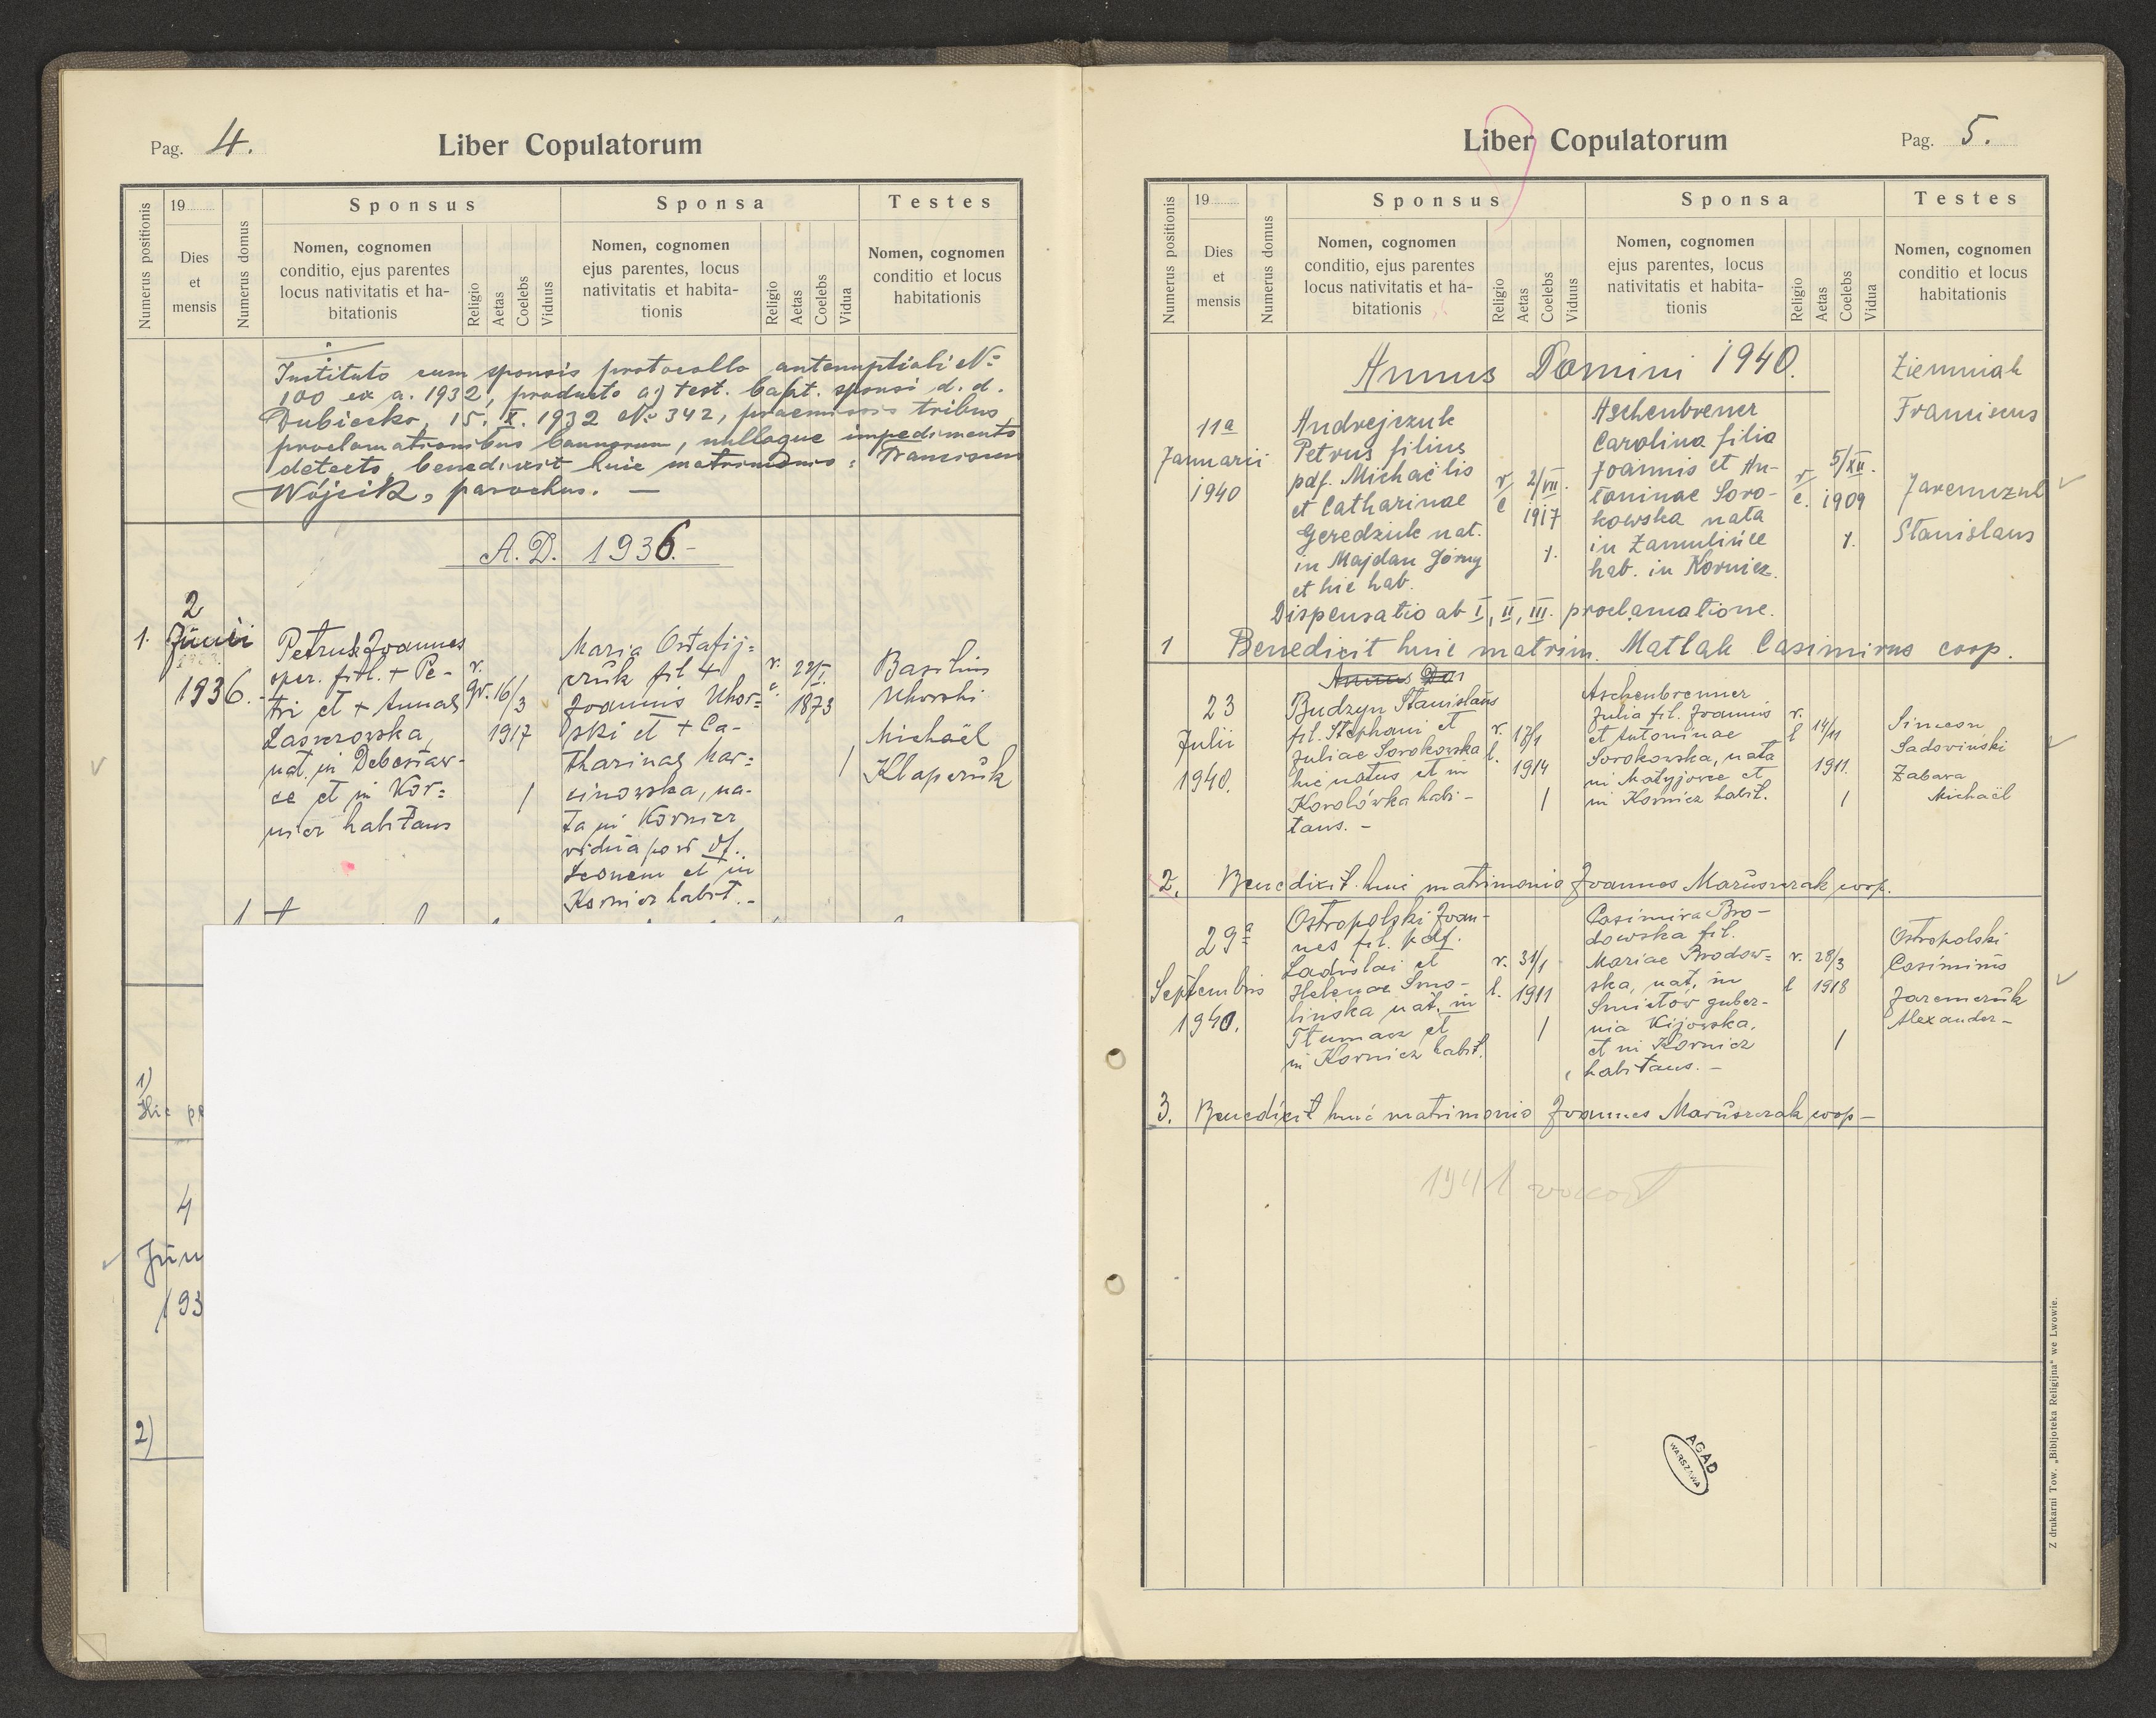 Pag. 4.
Liber Copulatorum
Numerus positionis
19
Dies
et
mensis
Numerus domus
Sponsus
Nomen, cognomen
conditio, ejus parentes
locus nativitatis et ha-
bitationis
Religio
Aetas
Coelebs
Viduus
Sponsa
Nomen, cognomen
ejus parentes, locus
nativitatis et habita-
tionis
Religio
Aetas
Coelebs
Vidua
Testes
Nomen, cognomen
conditio et locus
habitationis
Instituto cum sponsis protocollo antenuptiali No
100 ex a. 1932, producto a) test. bapt. sponsi d. d.
Dubiecko, 15. X. 1932 No 342, praemissis tribus
proclamationibus bannorum, nulloque impedimento
detecto, benedixit huic matrimonio: Franciscus
Wójcik, parochus. —
A. D. 1936.-
1.
2
Junii
1936.-
Petruk Joannes
oper. fil. + Pe-
tri et + Annae
nat. in Debesław-
ce et in Kor=
nicz habitans
r.
gr.
16/3
1917
/
Maria Ostafij=
czuk fil +
Joannis Uhor=
ski et + Ca-
tharinae Mar=
cinowska, na-
ta in Kornicz
Leonem et in
Kornicz habit.-
r.
c.
22/I.
1873
/
Basilius
Uhorski
Michaël
Klapczuk
1)
Hic
4
Jun
193
2)
Pag. 5.
Liber Copulatorum
Numerus positionis
19
Dies
et
mensis
Numerus domus
Sponsus
Nomen, cognomen
conditio, ejus parentes
locus nativitatis et ha-
bitationis
Religio
Aetas
Coelebs
Viduus
Sponsa
Nomen, cognomen
ejus parentes, locus
nativitatis et habita-
tionis
Religio
Aetas
Coelebs
Vidua
Testes
Nomen, cognomen
conditio et locus
habitationis
Annus Domini 1940.
11a
Januarii
1940
Andrejczuk
Petrus filius
pdf. Michaëlis
et Catharinae
Geredziuk nat.
in Majdan Górny
et hic hab.
r/c
2/VII.
1917
1.
Aschenbrener
Carolina filia
Joannis et An-
toninae Soro-
kowska nata
in Zamulińce
hab. in Kornicz.
r/c.
5/XII.
1909
1.
Ziemniak
Franciscus
Jaremczuk
Stanislaus
Dispensatio ab I, II, III. proclamatione.
1 Benedixit huic matrim. Matlak Casimirus coop.
23
Julii
1940.
Budzyn Stanislaus
fil. Stephani et
Juliae Sorokowska
hic natus et in
Korolówka habi-
tans. -
r.
l.
17/1
1914
/
Aschenbrenner
Julia fil. Joannis
et Antoninae
Sorokowska, nata
in Matyjowce et
in Kornicz habit.
r.
l
14/11
1911.
/
Simeon
Sadowiński
Zabara
Michaël
2. Benedixit huic matrimonio Joannes Maruszczak coop.
29a
Septembris
1940.
Ostropolski Joan-
nes fil. pdf.
Ladislai et
Helenae Smo-
linska nat. in
Tłumacz et
in Kornicz habit.
r.
l.
31/1
1911
/
Casimira Bro-
dowska fil.
Mariae Brodow=
ska, nat. in
Smietow guber-
nia Kijowska,
et in Kornicz
habitans. -
r.
l
28/3
1918
/
Ostropolski
Casimirus
Jaremczuk
Alexander-
3. Benedixit huic matrimonio Joannes Maruszczak coop-
1941 vacat
AGAD
WARSZAWA
Z drukarni Tow. „Bibljoteka Religijna" we Lwowie.